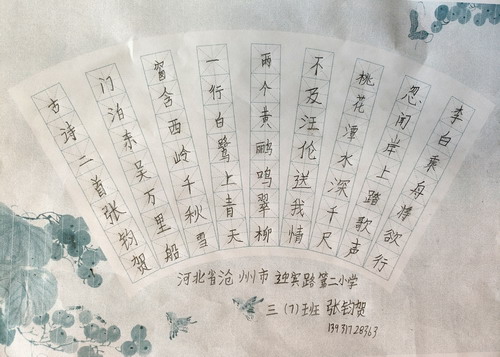 李白乘舟将欲行
忽闻岸上踏歌声
桃花潭水深千尺
不及汪伦送我情
两个黄鹂鸣翠柳
一行白鹭上青天
窗含西岭千秋雪
门泊东吴万里船
古诗二首张钧贺
河北省沧州市迎宾路第二小学
三(7)班 张钧贺
13931728363